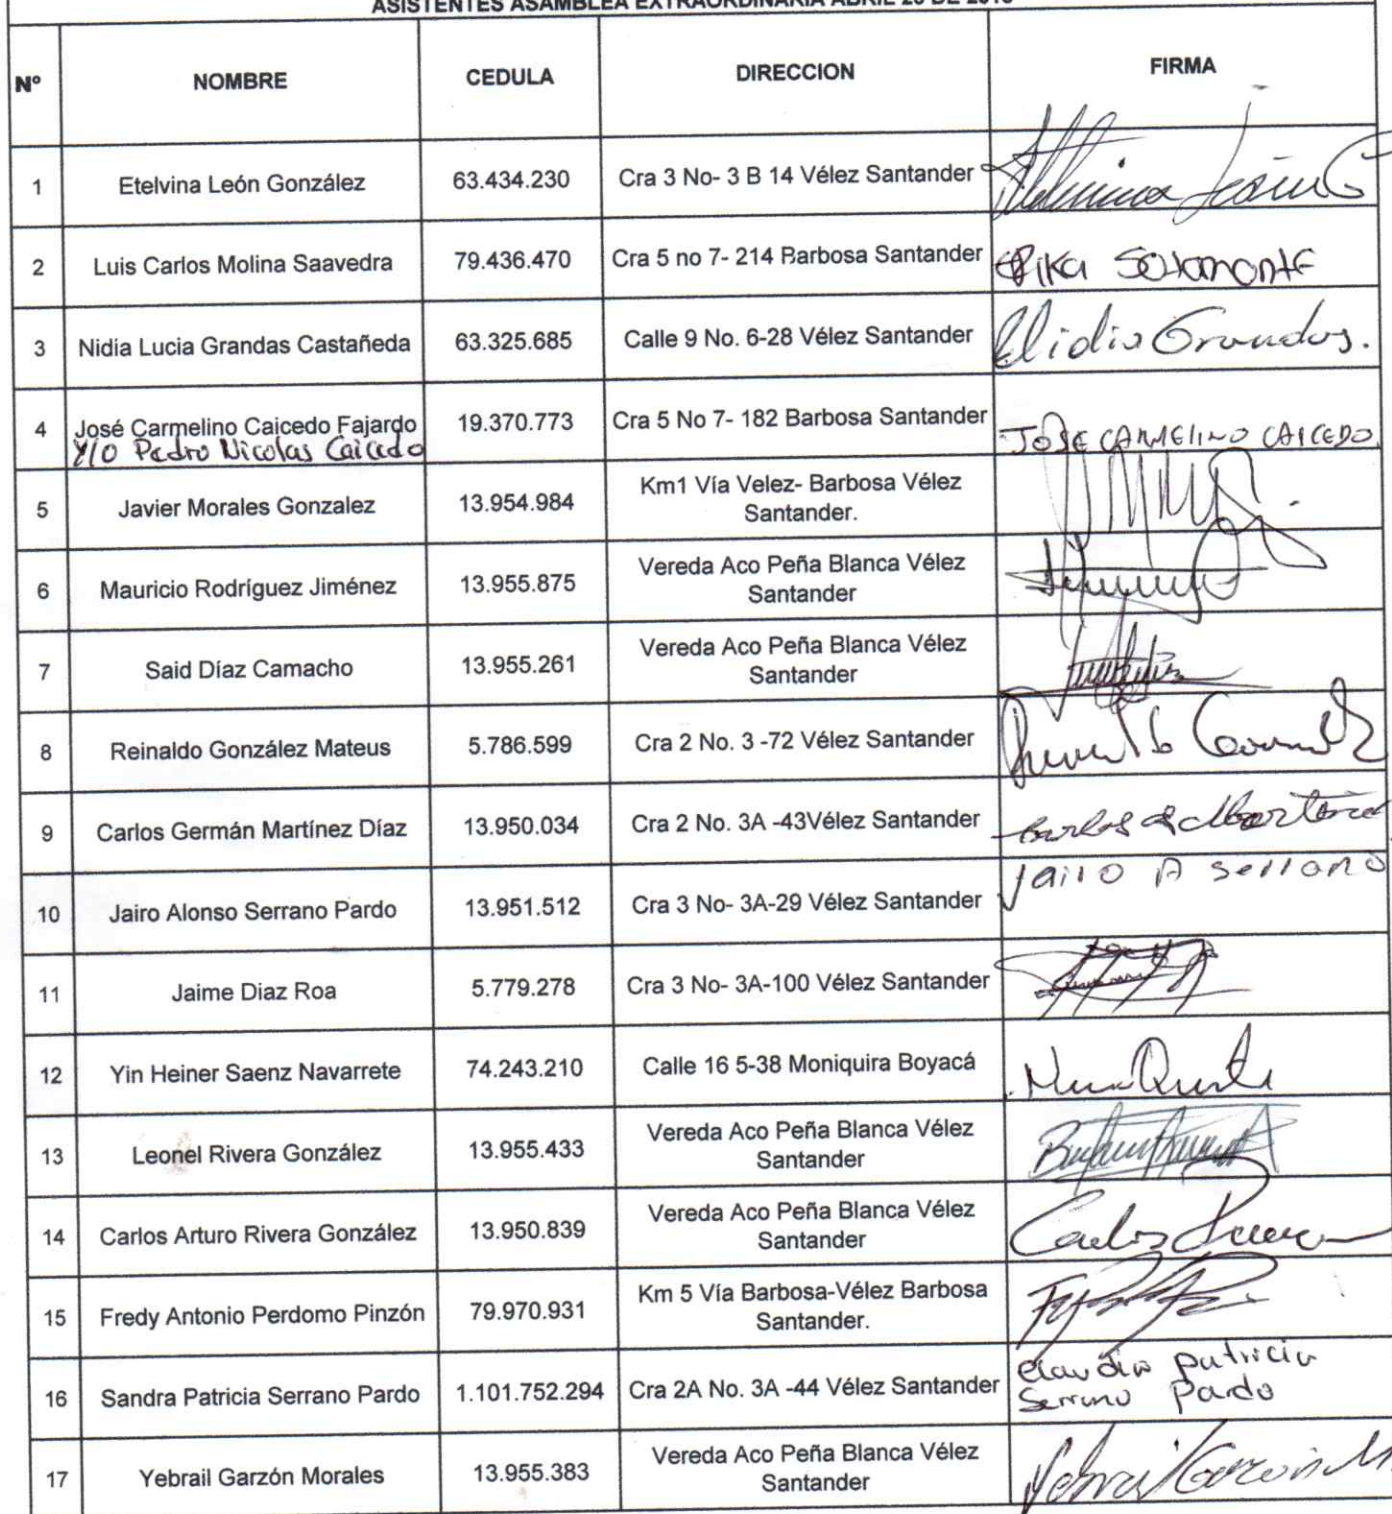 ASISTENTES ASAMBLEA EXTRAORDINARIA ABRIL DE
Nº NOMBRE CEDULA DIRECCION FIRMA
1 Etelvina León González 63.434.230 Cra 3 No- 3 B 14 Vélez Santander
2 Luis Carlos Molina Saavedra 79.436.470 Cra 5 no 7- 214 Barbosa Santander
3 Nidia Lucia Grandas Castañeda 63.325.685 Calle 9 No. 6-28 Vélez Santander
4 José Carmelino Caicedo Fajardo 19.370.773 Cra 5 No 7- 182 Barbosa Santander JOSE CARMELINO CAICEDO
Y/O Pedro Nicolas Caicedo
5 Javier Morales Gonzalez 13.954.984 Km1 Vía Velez- Barbosa Vélez
Santander.
6 Mauricio Rodríguez Jiménez 13.955.875 Vereda Aco Peña Blanca Vélez
Santander
7 Said Díaz Camacho 13.955.261 Vereda Aco Peña Blanca Vélez
Santander
8 Reinaldo González Mateus 5.786.599 Cra 2 No. 3 -72 Vélez Santander
9 Carlos Germán Martínez Díaz 13.950.034 Cra 2 No. 3A -43Vélez Santander
10 Jairo Alonso Serrano Pardo 13.951.512 Cra 3 No- 3A-29 Vélez Santander Jairo A Serrano
11 Jaime Diaz Roa 5.779.278 Cra 3 No- 3A-100 Vélez Santander
12 Yin Heiner Saenz Navarrete 74.243.210 Calle 16 5-38 Moniquira Boyacá
13 Leonel Rivera González 13.955.433 Vereda Aco Peña Blanca Vélez
Santander
14 Carlos Arturo Rivera González 13.950.839 Vereda Aco Peña Blanca Vélez
Santander
15 Fredy Antonio Perdomo Pinzón 79.970.931 Km 5 Vía Barbosa-Vélez Barbosa
Santander.
16 Sandra Patricia Serrano Pardo 1.101.752.294 Cra 2A No. 3A -44 Vélez Santander Claudia Patricia
Serrano Pardo
17 Yebrail Garzón Morales 13.955.383 Vereda Aco Peña Blanca Vélez
Santander